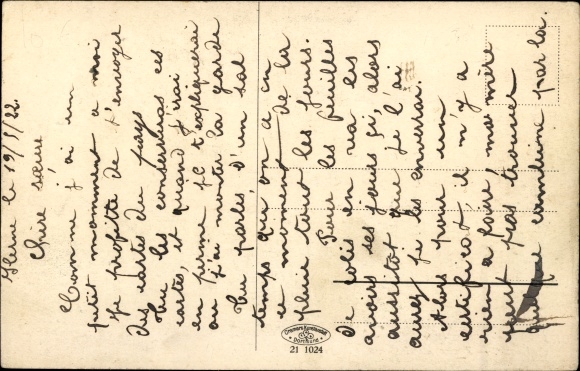 Herne le 19/5/22.
Chère sœur
Comme j'ai un
petit momment a moi
je profitte de t'envoyer
des cartes du pays
Tu les conserveras ces
cartes, et quand j'irai
en perme je t'expliquerai
ou j'ai monter la garde
Tu parles d'un sal
temps que on a en
ce moment de la
pluie tout les jours.
Pour les feuilles
de colis en va les
avoirs ses jours çi, alors
aussitot que je l'ai
aurez je les enverrai.
Alors pour un
certificat il m'y a
rien a faire, ma mère
peut pas trouver
combine par la.
Cramers Kunstanstalt
Dortmund
21 1024